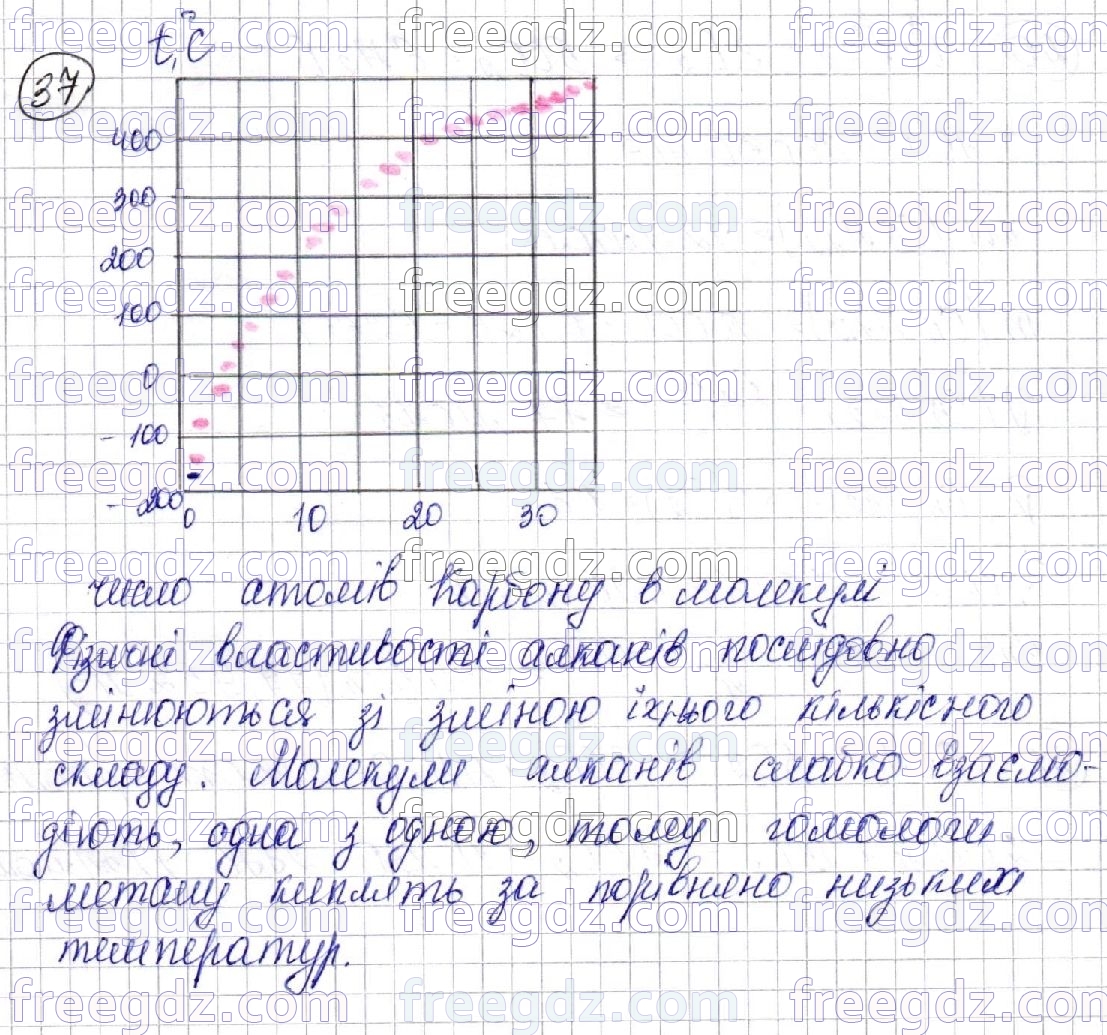 t,°C
37
400
300
200
100
0
-100
-200
0 10 20 30
число атомів Карбону в молекулі
Фізичні властивості алканів послідовно
змінюються зі зміною їхнього кількісного
складу. Молекули алканів слабко взаємо-
діють, одна з одною, тому гомологи
метану киплять за порівняно низьких
температур.
freegdz.com